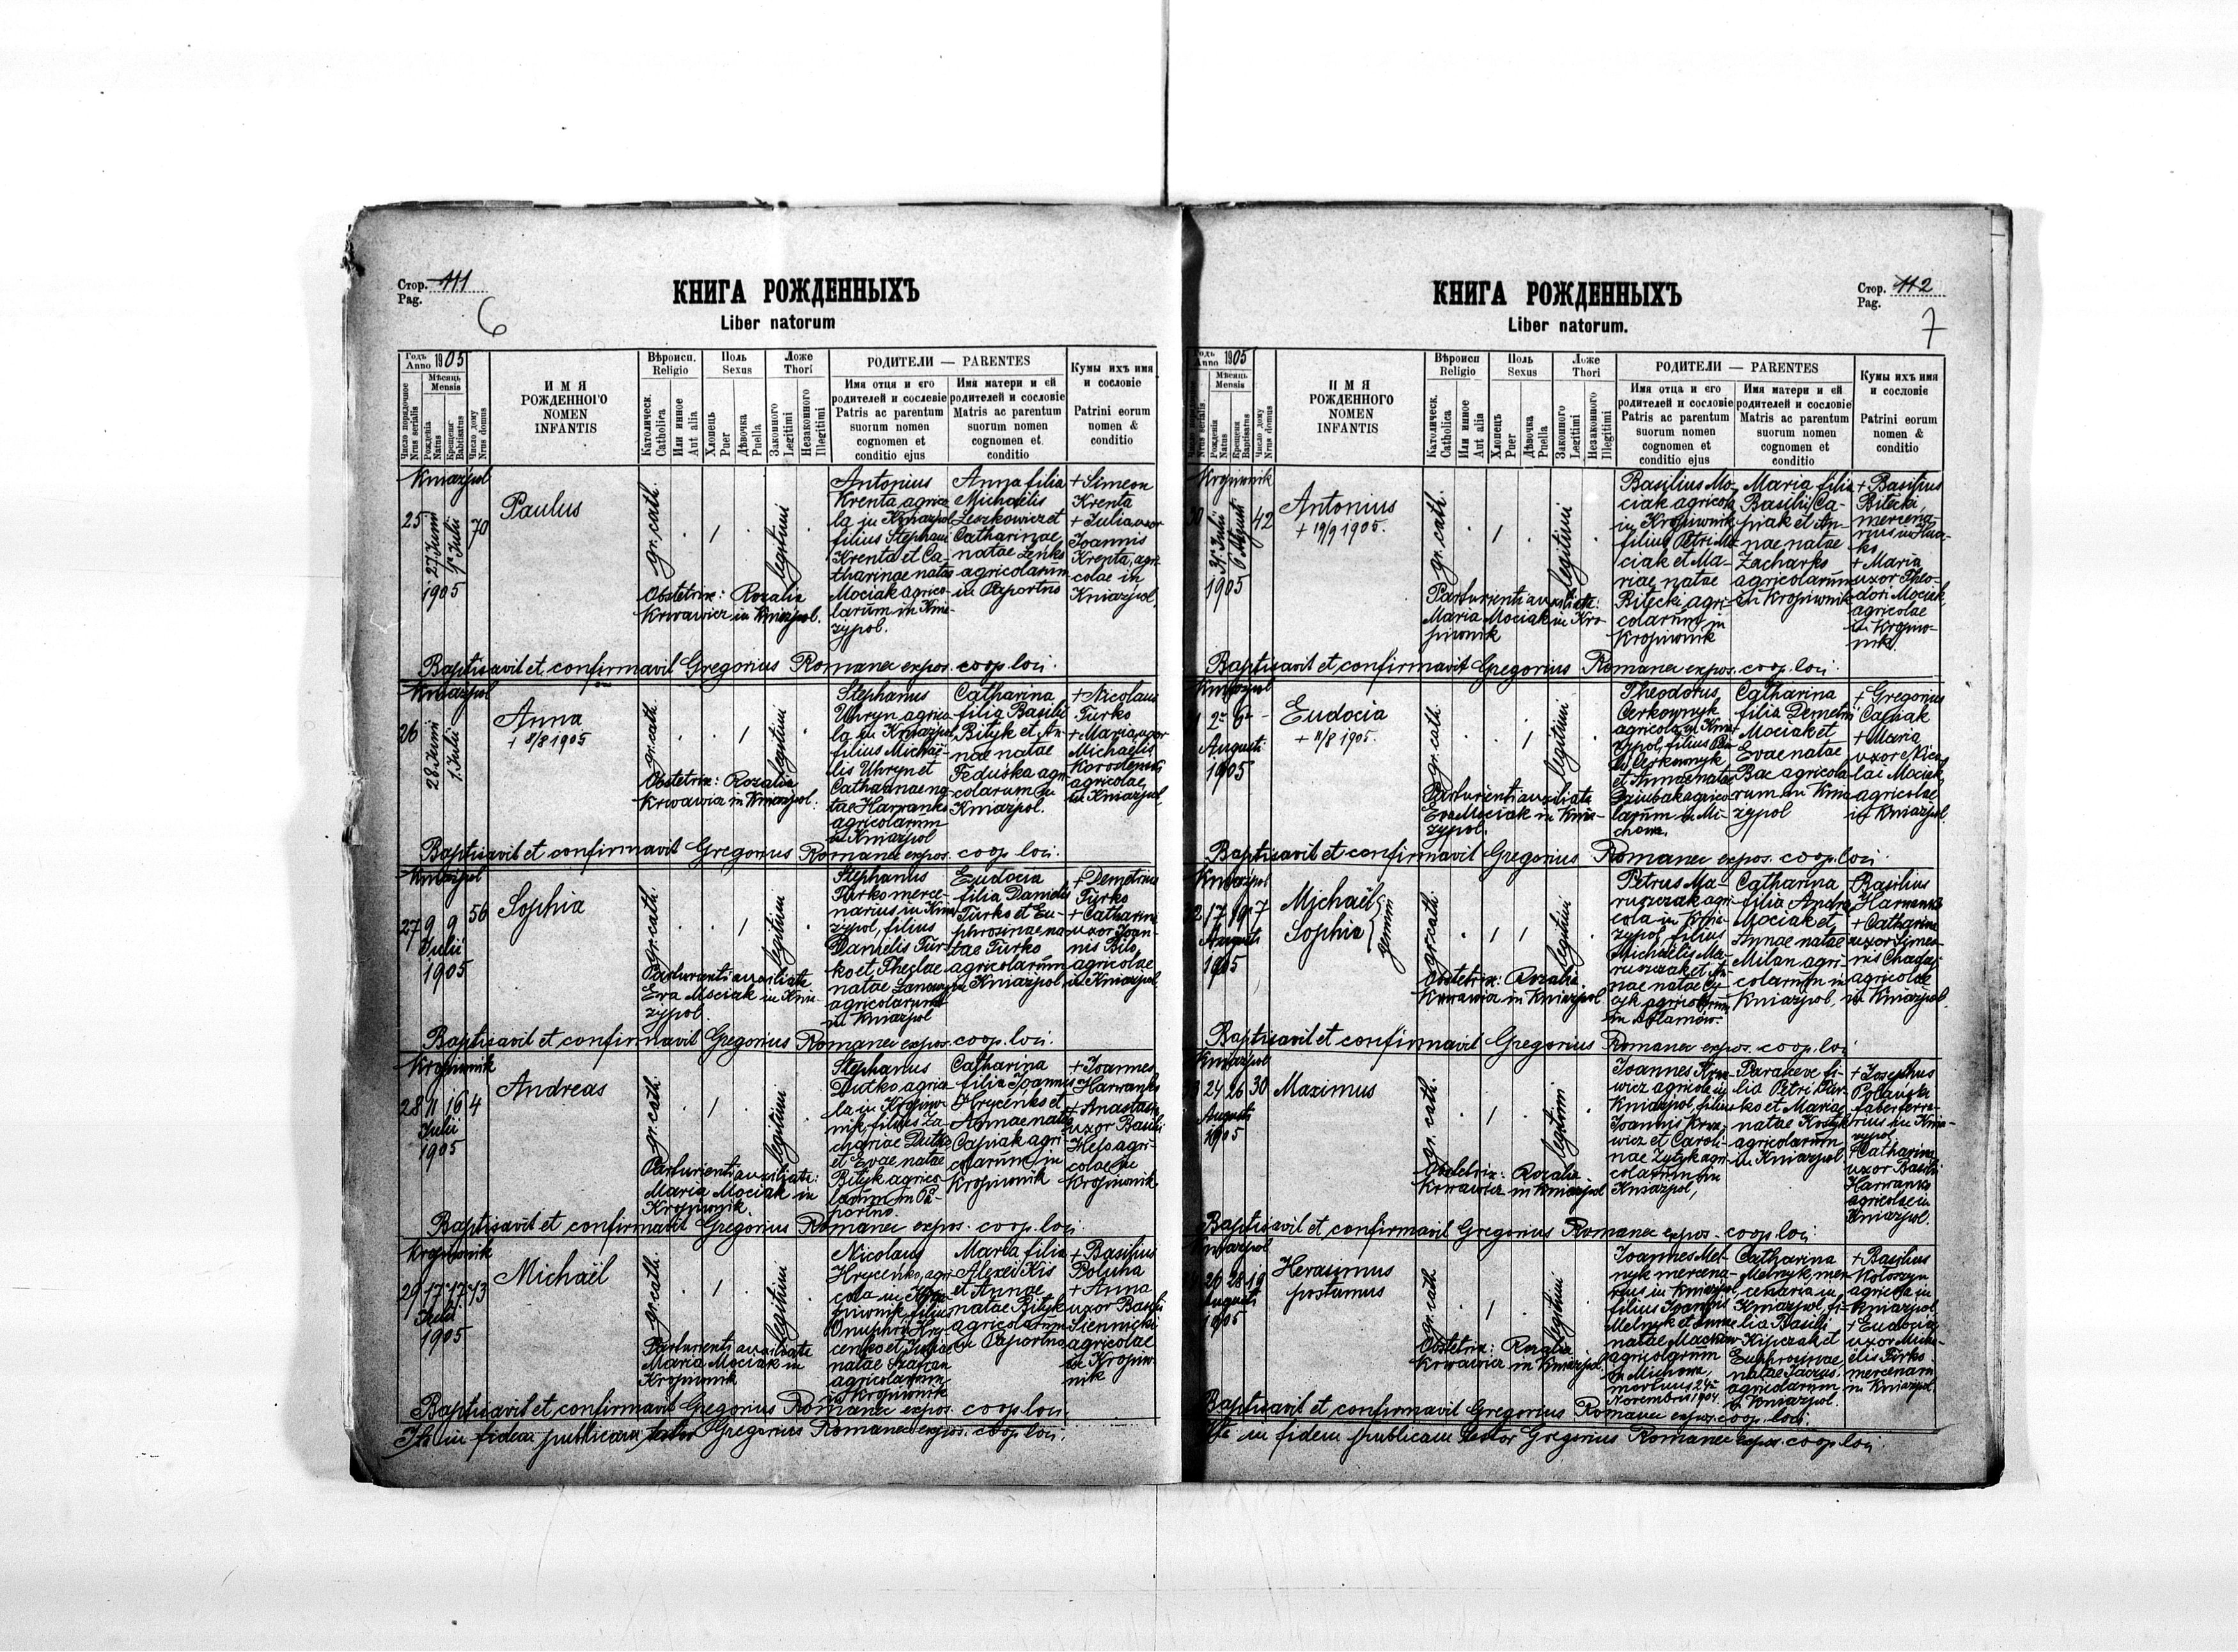 Стор. 111
Pag.
6
КНИГА РОЖДЕННЫХЪ
Liber natorum
Годъ Anno 1905
Мѣсяць
Mensis
Число порядочное
Nrus serialis
Рожденія
Natus
Крещенія
Babtisatus
Число дому
Nrus domus
ИМЯ
РОЖДЕННОГО
NOMEN
INFANTIS
Вѣроисп.
Religio
Католическ.
Catholica
Или инное
Aut alia
Поль
Sexus
Хлопець
Puer
Дѣвочка
Puella
Ложе
Thori
Законного
Legitimi
Незаконного
Illegitimi
РОДИТЕЛИ — PARENTES
Имя отца и его
родителей и сословіе
Patris ac parentum
suorum nomen
cognomen et
conditio ejus
Имя матери и ей
родителей и сословіе
Matris ac parentum
suorum nomen
cognomen et.
conditio
Кумы ихъ имя
и сословіе
Patrini eorum
nomen &
conditio
Kniazpol
25
27 Junii
1 Julii
1905
70
Paulus
gr. cath.
legitimi
Obstetrix: Rozalia
Krwawicz in Kniazpol.
Antonius
Krenta agrico-
la in Kniazpol
filius Stephani
Krenta et Ca-
tharinae natae
Mociak agrico-
larum in Knia-
zypol.
Anna filia
Michaëlis
Leszkowicz et
Catharinae
natae Lenko
agricolarum
in Paportno
+ Simeon
Krenta
+ Julia uxor
Joannis
Krenta, agri-
colae in
Kniazpol
Baptisavit et confirmavit Gregorius Romanec expos. coop. loci.
Kniazpol
26
28 Junii
1 Julii
Anna
+ 8/8 1905
gr. cath.
legitimi
Obstetrix: Rozalia
Krwawicz in Kniazpol.
Stephanus
Uhryn agrico-
la in Kniazpol
filius Michaë-
lis Uhryn et
Catharinae na-
tae Harwanko
agricolarum
in Kniazpol
Catharina
filia Basilii
Bityk et An-
nae natae
Feduska agri-
colarum in
Kniazpol.
+ Nicolaus
Turko
+ Maria uxor
Michaëlis
agricolae
in Kniazpol
Baptisavit et confirmavit Gregorius Romanec expos. coop. loci.
Kniazpol
27 9 9 56
Julii
1905
Sophia
gr. cath.
legitimi
Parturienti auxiliata
Eva Mociak in Knia-
zypol.
Stephanus
Turko merce-
narius in Knia-
zypol, filius
Danielis Tur-
ko et Theclae
natae
agricolarum
in Kniazpol
Eudocia
filia Danielis
Turko et Eu-
phrosinae na-
tae Turko
agricolarum
in Kniazpol
+ Demetrius
Turko
+ Catharina
uxor Joan-
nis Bilo,
agricolae
in Kniazpol
Baptisavit et confirmavit Gregorius Romanec expos. coop. loci.
Kropiwnik
28 11 16 4
Julii
1905
Andreas
gr. cath.
legitimi
Parturienti auxiliata:
Maria Mociak in
Kropiwnik.
Stephanus
Dutko agrico-
la in Kropiw-
nik, filius Za-
chariae Dutko
et Evae natae
Bityk agrico-
larum in Pa-
portno.
Catharina
filia Joannis
Hrycenko et
Annae natae
Capiak agri-
colarum in
Kropiwnik
+ Joannes
Harwanko
+ Anastasia
uxor Basilii
agri-
colae in
Kropiwnik.
Baptisavit et confirmavit Gregorius Romanec expos. coop. loci.
Kropiwnik
29 17 17 43
Julii
1905
Michaël
gr. cath.
legitimi
Parturienti auxiliata
Maria Mociak in
Kropiwnik
Nicolaus
Hrycenko, agri-
cola in Kro-
piwnik filius
Onuphrii Hry-
cenko et Juliae
natae Szafran
agricolarum
in Kropiwnik
Maria filia
Alexei Kis
et Annae
natae Bityk
agricolarum
in Paportno
+ Basilius
Poluha
+ Anna
uxor Basilii
Siennicki
agricolae
in Kropiw-
nik
Baptisavit et confirmavit Gregorius Romanec expos. coop. loci.
Ita in fidem publicam testor Gregorius Romanec expos. coop. loci.
Стор. 112
Pag.
7
КНИГА РОЖДЕННЫХЪ
Liber natorum.
Годъ Anno 1905
Мѣсяць
Mensis
Nrus serialis.
Рожденія
Natus
Крещенія
Baptisatus
Число дому
Nrus domus
ИМЯ
РОЖДЕННОГО
NOMEN
INFANTIS
Вѣроисп
Religio
Католическ.
Catholica
Или инное
Aut alia
Поль
Sexus
Хлопець
Puer
Дѣвочка
Puella
Ложе
Thori
Законного
Legitimi
Незаконного
Illegitimi
РОДИТЕЛИ — PARENTES
Имя отца и его
родителей и сословіе
Patris ac parentum
suorum nomen
cognomen et
conditio ejus
Имя матери и ей
родителей и сословіе
Matris ac parentum
suorum nomen
cognomen et
conditio
Кумы ихъ имя
и сословіе
Patrini eorum
nomen &
conditio
Kropiwnik
31 Julii
6 Augusti
1905
42
Antonius
+ 19/9 1905.
gr. cath.
legitimi
Parturienti auxiliata:
Maria Mociak in Kro-
piwnik
Basilius Mo-
ciak agricola
in Kropiwnik
filius Petri Mo-
ciak et Ma-
riae natae
Bitecki agri-
colarum in
Kropiwnik
Maria filia
Basilii Ca-
piak et An-
nae natae
Zacharko
agricolarum
in Kropiwnik
+ Basilius
Bitecki,
mercena-
rius in
+ Maria
uxor Theo-
dori Mociak
agricolae
in Kropiw-
nik.
Baptisavit et confirmavit Gregorius Romanec expos. coop. loci.
Kniazpol
2 6 -
Augusti
1905
Eudocia
+ 11/8 1905.
gr. cath.
legitimi
Parturienti auxiliata
Eva Mociak in Knia-
zypol.
Theodorus
Cerkownyk
agricola in Knia-
zypol, filius
Cerkownyk
et Annae natae
Dziubak agrico-
larum in Mi-
chowa.
Catharina
filia Demetrii
Mociak et
Evae natae
Bac agricola-
rum in Knia-
zypol
+ Gregorius
Capiak
+ Maria
uxor Nico-
lai Mociak,
agricolae
in Kniazpol
Baptisavit et confirmavit Gregorius Romanec expos. coop. loci.
Kniazpol
17 19 7
Augusti
1905
Michaël
Sophia
gemini
gr. cath.
legitimi
Obstetrix: Rozalia
Krwawicz in Kniazpol
Petrus Ma-
ruszczak agri-
cola in Knia-
zypol filius
Michaëlis Ma-
ruszczak et An-
nae natae
agricolarum
in
Catharina
filia Andreae
Mociak et
Annae natae
Milan agri-
colarum in
Kniazpol.
Basilius
Harwanko
+ Catharina
uxor Simeo-
nis
agricolae
in Kniazpol.
Baptisavit et confirmavit Gregorius Romanec expos. coop. loci
Kniazpol
24 26 30
Augusti
1905
Maximus
gr. cath.
legitimi
Obstetrix: Rozalia
Krwawicz in Kniazpol
Joannes Krwa-
wicz agricola in
Kniazpol, filius
Joannis Krwa-
wicz et Caroli-
nae Zytyk agri-
colarum in
Kniazpol,
Parasceve fi-
lia Petri Tur-
ko et Mariae
natae Kostyk
agricolarum
in Kniazpol
+ Josephus
Polański
faber ferra-
rius in Knia-
zypol
+ Catharina
uxor Basilii
Harwanko
agricolae in
Kniazpol.
Baptisavit et confirmavit Gregorius Romanec expos. coop. loci.
Kniazpol
26 28 19
Augusti
1905
Herasimus
postumus
gr. cath.
legitimi
Obstetrix: Rozalia
Krwawicz in Kniazpol.
Joannes Mel-
nyk mercena-
rius in Kniazpol,
filius Joannis
Melnyk et Annae
natae
agricolarum
in Michowa,
mortuus 24
Novembris 1904.
Catharina
Melnyk, mer-
cenaria in
Kniazpol, fi-
lia Basilii
Kipczak et
Euphrosinae
natae
agricolarum
in Kniazpol.
+ Basilius
Koloszyn
agricola in
Kniazpol
+ Eudocia
uxor Micha-
ëlis Turko
mercenarii
in Kniazpol
Baptisavit et confirmavit Gregorius Romanec expos. coop. loci.
Ita in fidem publicam testor Gregorius Romanec expos. coop. loci.